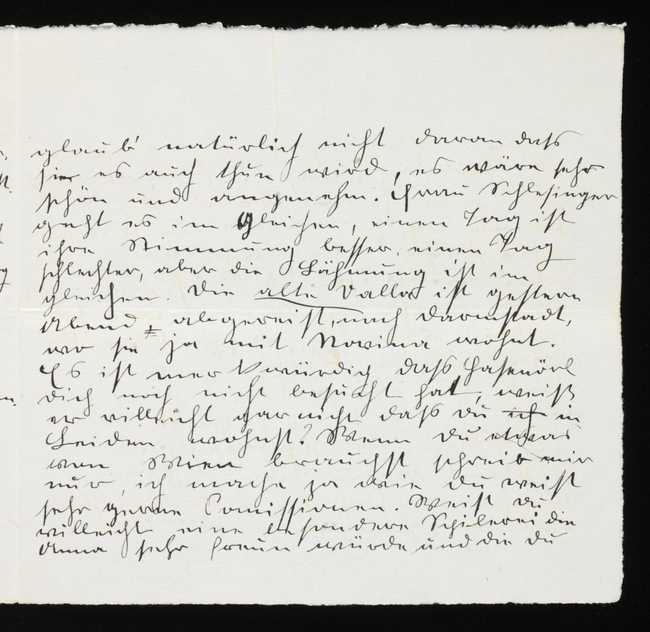 glaub' natürlich nicht daran daß
sie es auch thun wird, es wäre sehr
schön und angenehm. Frau Schlesinger
geht es im gleichen, einen Tag ist
ihre Stimmung besser, einen Tag
schlechter, aber die Lähmung ist im
gleichen. Die alte Valla ist gestern
Abend, abgereist, nach Darmstadt,
wo sie ja mit wohnt.
Es ist merkwürdig daß Hasenörl
dich noch nicht besucht hat, weiß
er villeicht gar nicht daß du in
Leiden wohnst? Wenn du etwas
von Wien brauchst schreib mir
nur, ich mache ja wie du weist
sehr gerne Comissionen. Weist du
villeicht eine besondere die
Anna sehr freun würde und die du